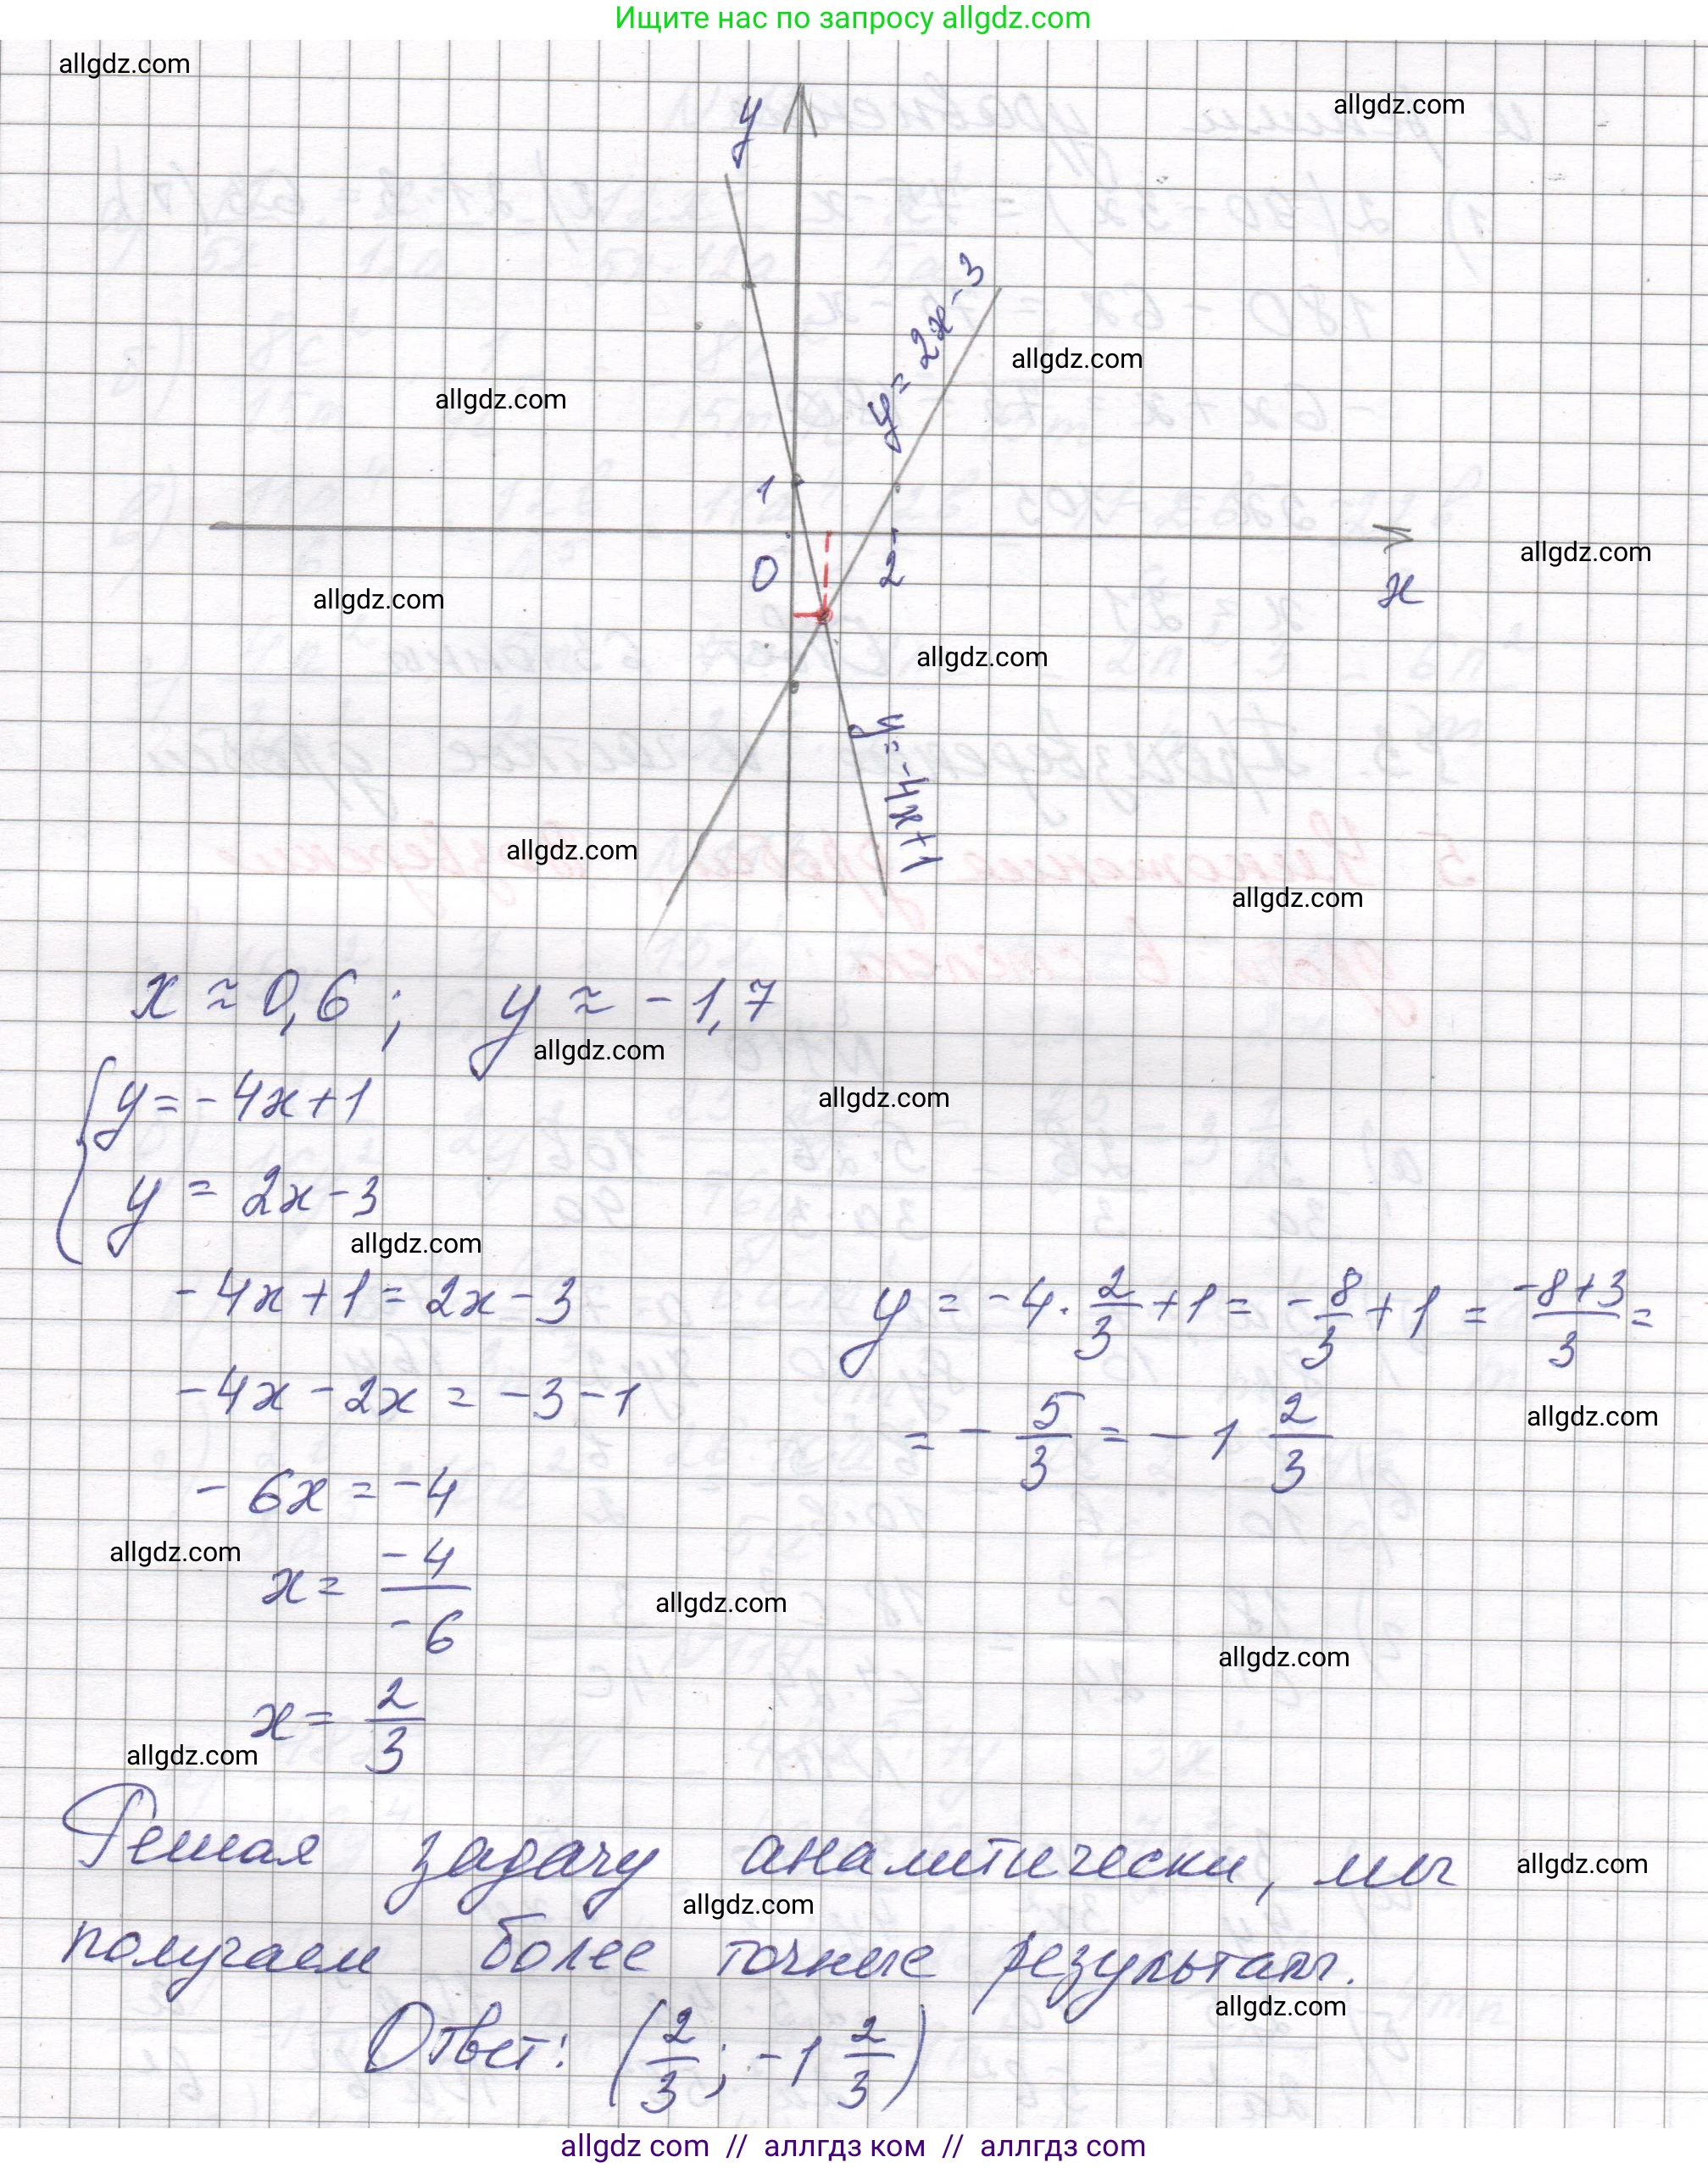 Ищите нас по запросу allgdz.com
allgdz.com
allgdz.com
y
y = 2x - 3
allgdz.com
allgdz.com
1
0
2
x
allgdz.com
allgdz.com
allgdz.com
y = -4x + 1
allgdz.com
allgdz.com
x ≈ 0,6 ; y ≈ -1,7
allgdz.com
allgdz.com
{ y = -4x + 1
y = 2x - 3
allgdz.com
-4x + 1 = 2x - 3
y = -4 · 2/3 + 1 = -8/3 + 1 = (-8+3)/3 =
-4x - 2x = -3 - 1
= -5/3 = -1 2/3
allgdz.com
-6x = -4
allgdz.com
x = -4/-6
allgdz.com
allgdz.com
x = 2/3
allgdz.com
Решая задачу аналитически, мы
allgdz.com
allgdz.com
получаем более точные результаты.
allgdz.com
Ответ: (2/3 ; -1 2/3)
allgdz com // аллгдз ком // аллгдз com